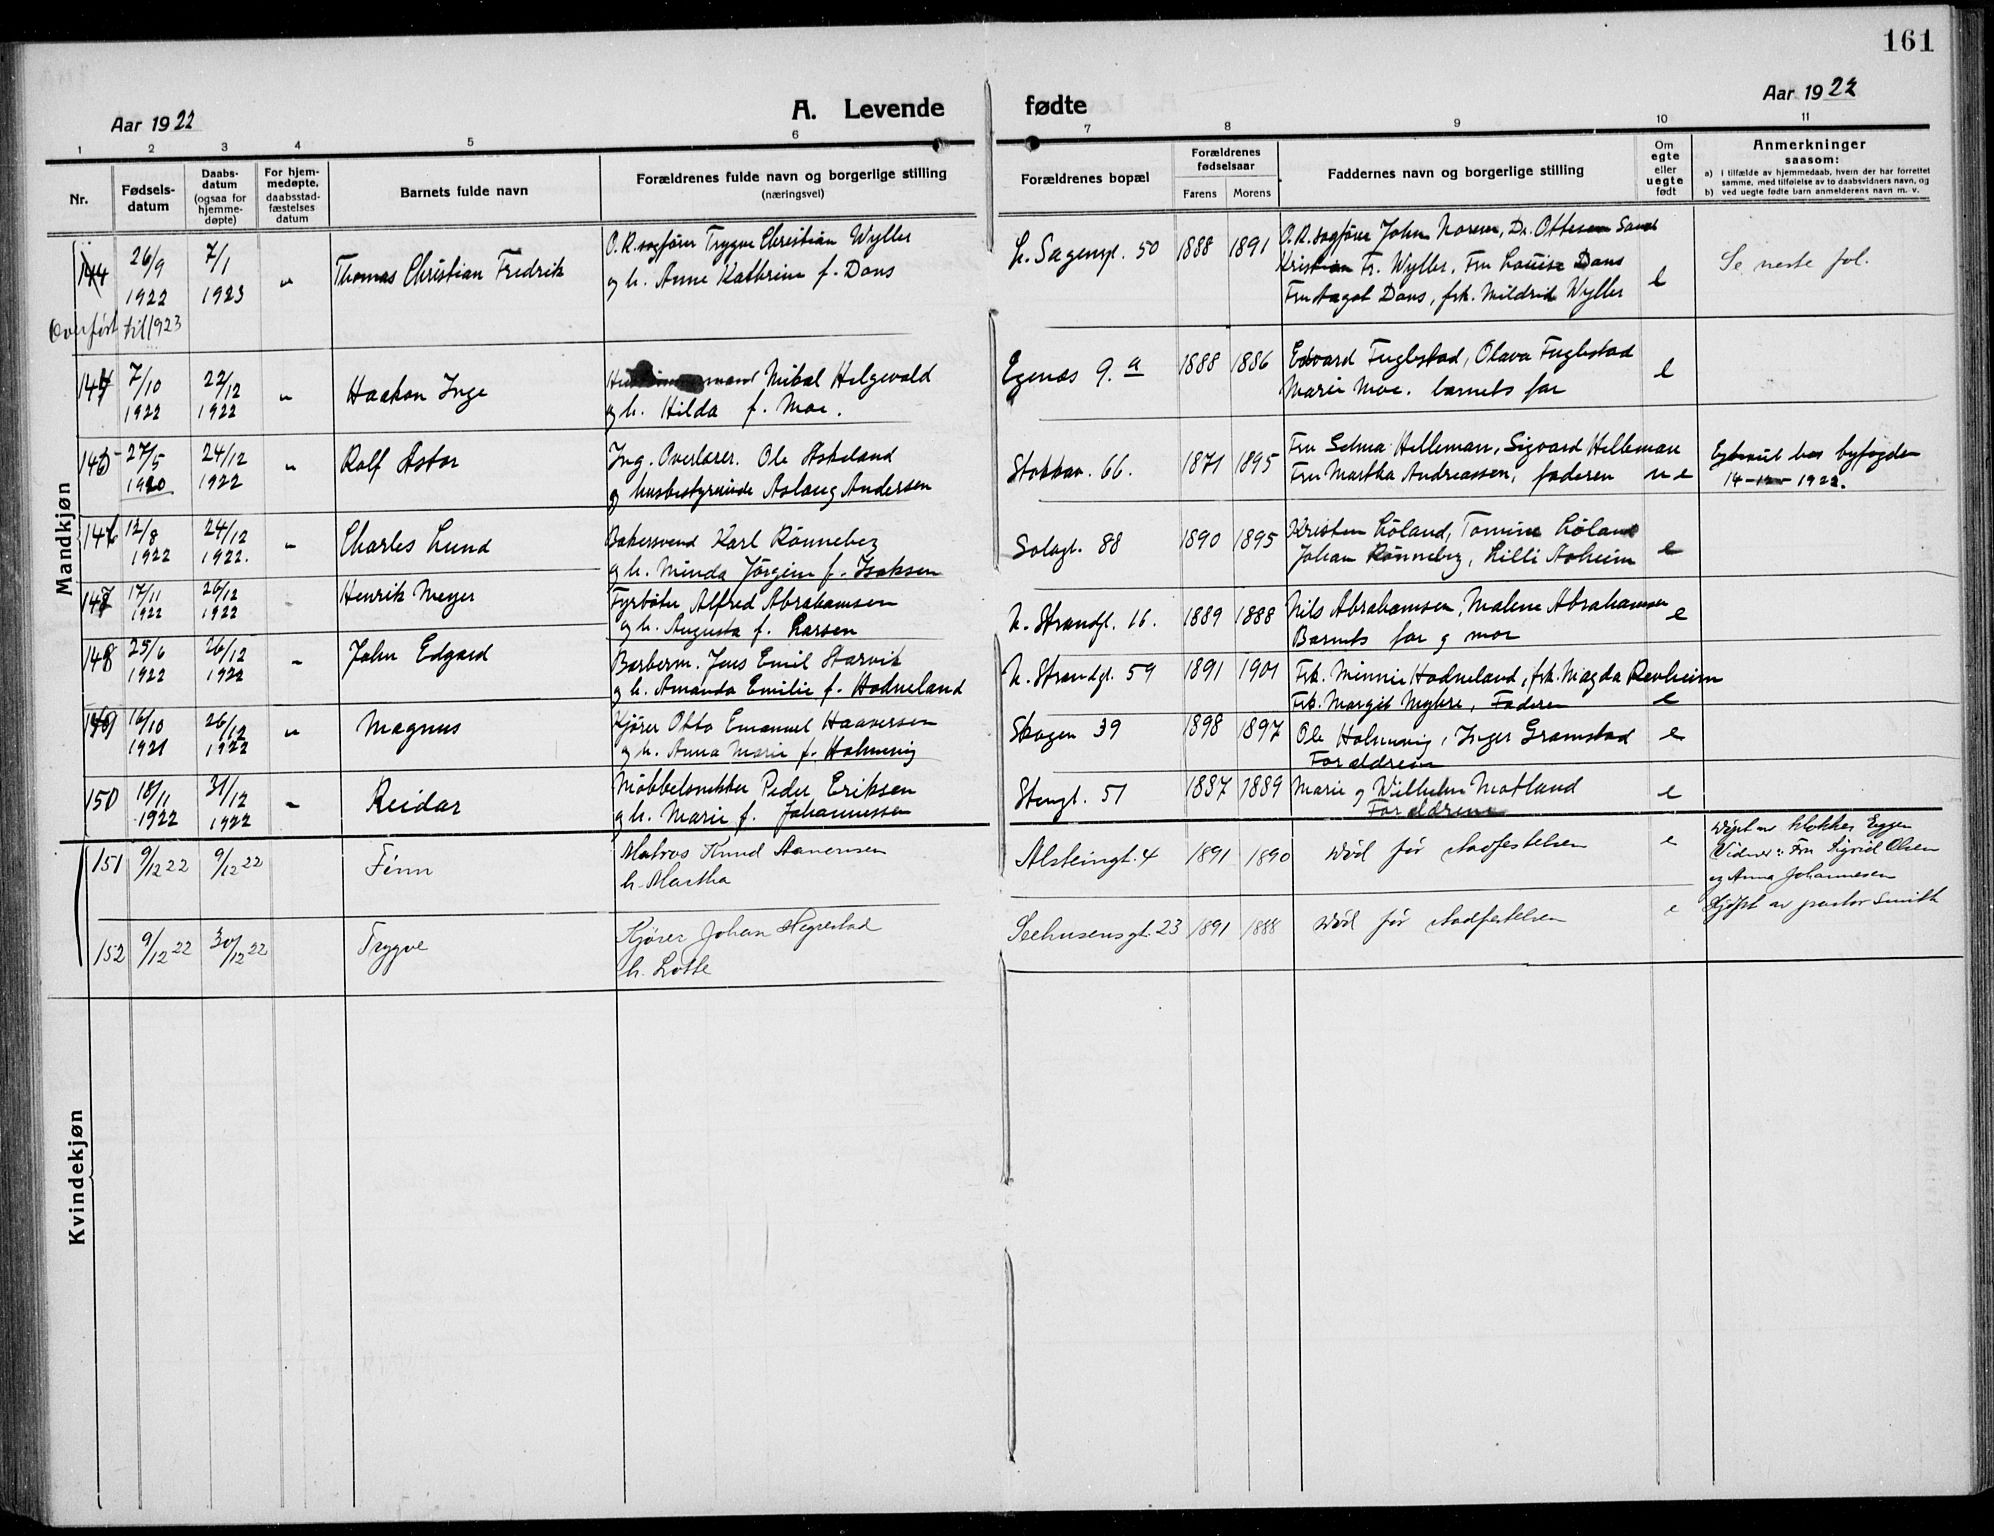 161
Aar 1922
A. Levende fødte
Aar 1922
1 2 3 4 5 6 7 8 9 10 11
Nr.
Fødsels-
datum
Daabs-
datum
(ogsaa for
hjemme-
døpte)
For hjem-
medøpte,
daabsstad-
fæstelses
datum
Barnets fulde navn
Forældrenes fulde navn og borgerlige stilling
(næringsvei)
Forældrenes bopæl
Forældrenes
fødselsaar
Farens Morens
Faddernes navn og borgerlige stilling
Om
egte
eller
uegte
født
Anmerkninger
saasom:
a) i tilfælde av hjemmedaab, hvem der har forrettet
samme, med tilføielse av to daabsvidners navn, og
b) ved uegte fødte barn anmelderens navn m. v.
Mandkjøn
144 26/9 1922 7/1 1923 " Thomas Christian Fredrik
Overført til 1923
O.R.sagfører Trygve Christian Wyller
og h. Anne Kathrine f. Dons
50 1888 1891
O.R.sagfører John Norem, Dr. Ottesen Sand
Kristian Fr. Wyller, Fru Louise Dons
Fru Aagot Dons, frk. Mildrid Wyller
e
Se neste fol.
144 7/10 1922 22/12 1922 " Haakon Inge
Mikal Helgevold
og h. Hilda f. Moe.
Egenæs 9.a 1888 1886
Edvard Fuglestad, Olava Fuglestad
Marie Moe. barnets far
e
145 27/5 1920 24/12 1922 " Rolf Astor
Ing. Overlærer. Ole Askeland
og husbestyrerinde Aslaug Andersen
Stokkav. 66. 1871 1895
Fru Selma Helleman, Sigvard Helleman
Fru Martha Andreassen, faderen
u e
byfogden
14-12-1922.
146 12/8 1922 24/12 1922. " Charles Lund
Bakersvend Karl Rønneberg
og h. Minda Jørgine f. Isaksen
Solagt. 88 1890 1895
Kristen Løland, Tomine Løland
Johan Rønneberg, Lilli Aaheim
e
147 17/11 1922 26/12 1922 " Henrik Meyer
Fyrbøter Alfred Abrahamsen
og h. Augusta f. Larsen
N. Strandgt. 16. 1889 1888
Nils Abrahamsen, Malene Abrahamsen
Barnets far og mor
e
148 25/6 1922 26/12 1922 " John Edgard
Barberm. Jens Emil Starvik
og h. Amanda Emilie f. Hodneland
N. Strandgt. 59 1891 1901
Frk. Minnie Hodneland, frk. Magda Revheim
Frk. Margit Myhre, Faderen
e
149 16/10 1921 26/12 1922 " Magnus
Kjører Otto Emanuel Haaversen
og h. Anna Marie f. Holmevig
Skagen 39 1898 1897
Ole Holmevig, Inger Gramstad
Forældrene
e
150 18/11 1922 31/12 1922 " Reidar
Møbbelsnekker Peder Eriksen
og h. Marie f. Johannessen
Stengt. 51 1887 1889
Marie og Wilhelm Motland
Forældrene
e
151 9/12 22 9/12 22 Finn
Matros Knud Aanensen
h. Martha
Alsteingt. 4 1891 1890
død før stadfestelsen
e
Døpt av klokker Eggen
Vidner: Fru Sigrid Olsen
og Anna Johannesen
152 9/12 22 30/12 22 Trygve
Kjører Johan Hegrestad
h. Lotte
Seehusensgt. 23 1891 1888
død før stadfestelsen
e
Hjdøpt av pastor Smith
Kvindekjøn